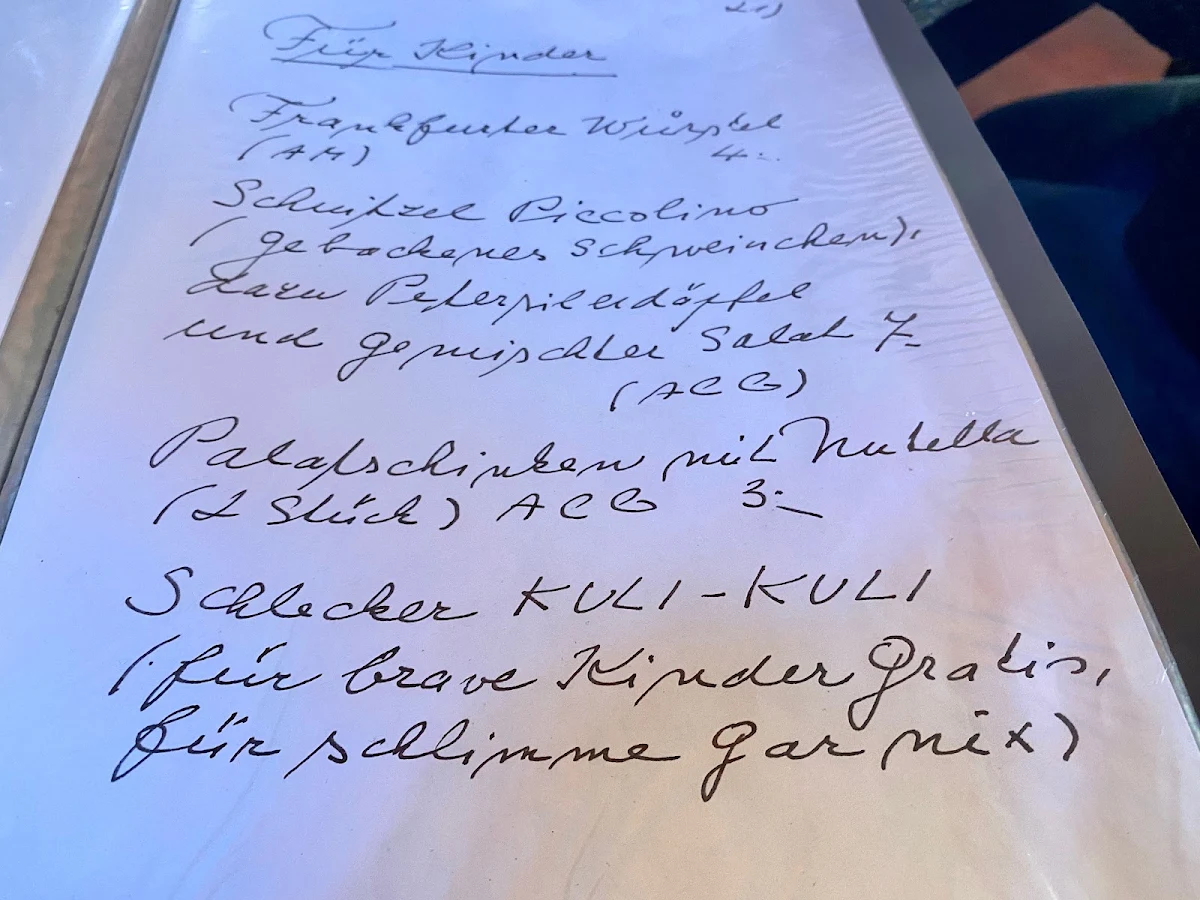 21)
Für Kinder
Frankfurter Würstel
(AM) 4.-
Schnitzel Piccolino
(gebackenes Schweinchen),
dazu Petersilerdäpfel
und gemischter Salat 7.-
(ACG)
Palatschinken mit Nutella
(2 Stück) ACG 3.-
Schlecker KULI-KULI
(für brave Kinder Gratis,
für schlimme gar nix)